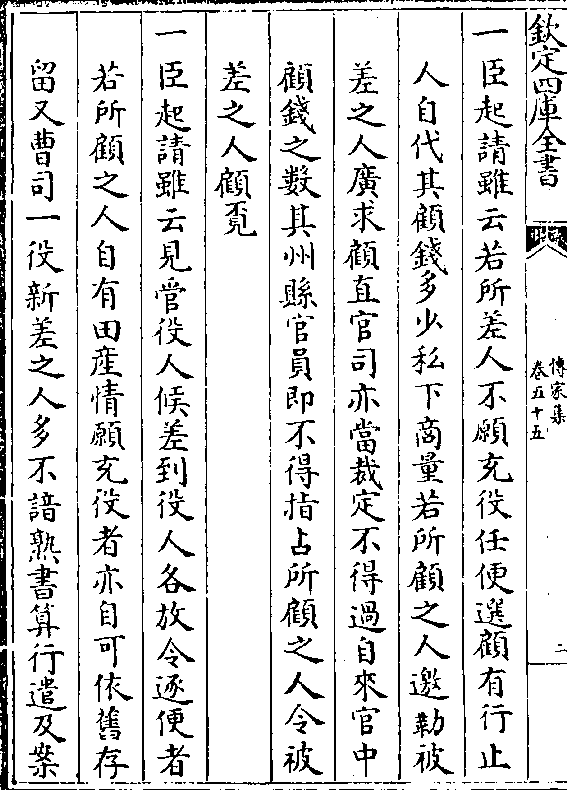 欽定四庫全書
傳家集
卷五十五
二
一臣起請雖云若所差人不願充役任便選顧有行止
人自代其顧錢多少私下商量若所顧之人邀勒被
差之人廣求顧直官司亦當裁定不得過自來官中
顧錢之數其州縣官員即不得指占所顧之人令被
差之人顧覔
一臣起請雖云見管役人候差到役人各放令逐便者
若所顧之人自有田産情願充役者亦自可依舊存
留又曹司一役新差之人多不諳熟書算行遣及案